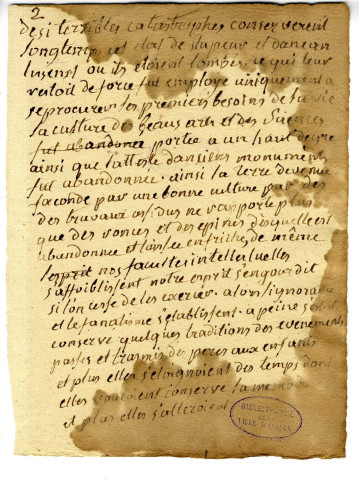 2
de si terribles catastrophes conserverent
longtemps cet etat de stupeur et danean
ou ils etoient tombés. ce qui leur
restoit de force fut employé uniquement a
se procurer les premiers besoins de la vie
la culture des beaux arts et des sciences
fut abandonné portée a un haut degré
ainsi que l'atteste danciens monuments
fut abandonnée. ainsi la terre devenue
feconde par une bonne culture par des
des travaux assidus ne rapporte plus
que des ronces et des epines des quelle est
abandonnée et laissée en friche, de même
l'esprit nos facultés intellectuelles
s'affoiblissent notre esprit s'engourdit
si l'on cesse de les exercer. alors l'ignorance
et le fanatisme s'etablissent. a peine
conserve quelques traditions des evenements
passés et transmis des peres aux enfants
et plus elles s'eloignoient des temps dont
elles conservé la memoire
et plus elles s'alteroient
BIBLIOTHEQUE
DE LA
VILLE